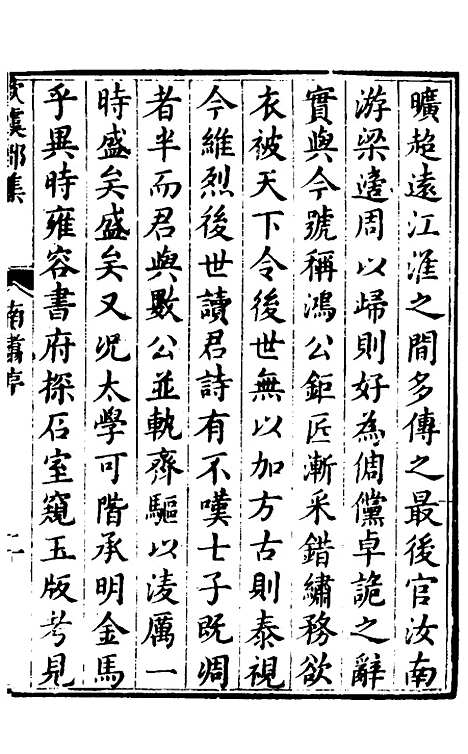 曠超遠江淮之間多傳之最後官汝南
游梁邊周以歸則好為倜儻卓詭之辭
實與今號稱鴻公鉅匠漸采錯繡務欲
衣被天下令後世無以加方古則泰視
今維烈後世讀君詩有不嘆七子既凋
者半而君與數公並軌齊驅以淩厲一
時盛矣盛矣又況太學可階承明金馬
乎異時雍容書府探石室窺玉版考見
虞部集
南翥亭
二